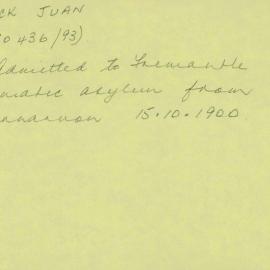 CK JUAN
0436/93)
Admitted to Fremantle
natic asylum from
narvon 15.10.1900